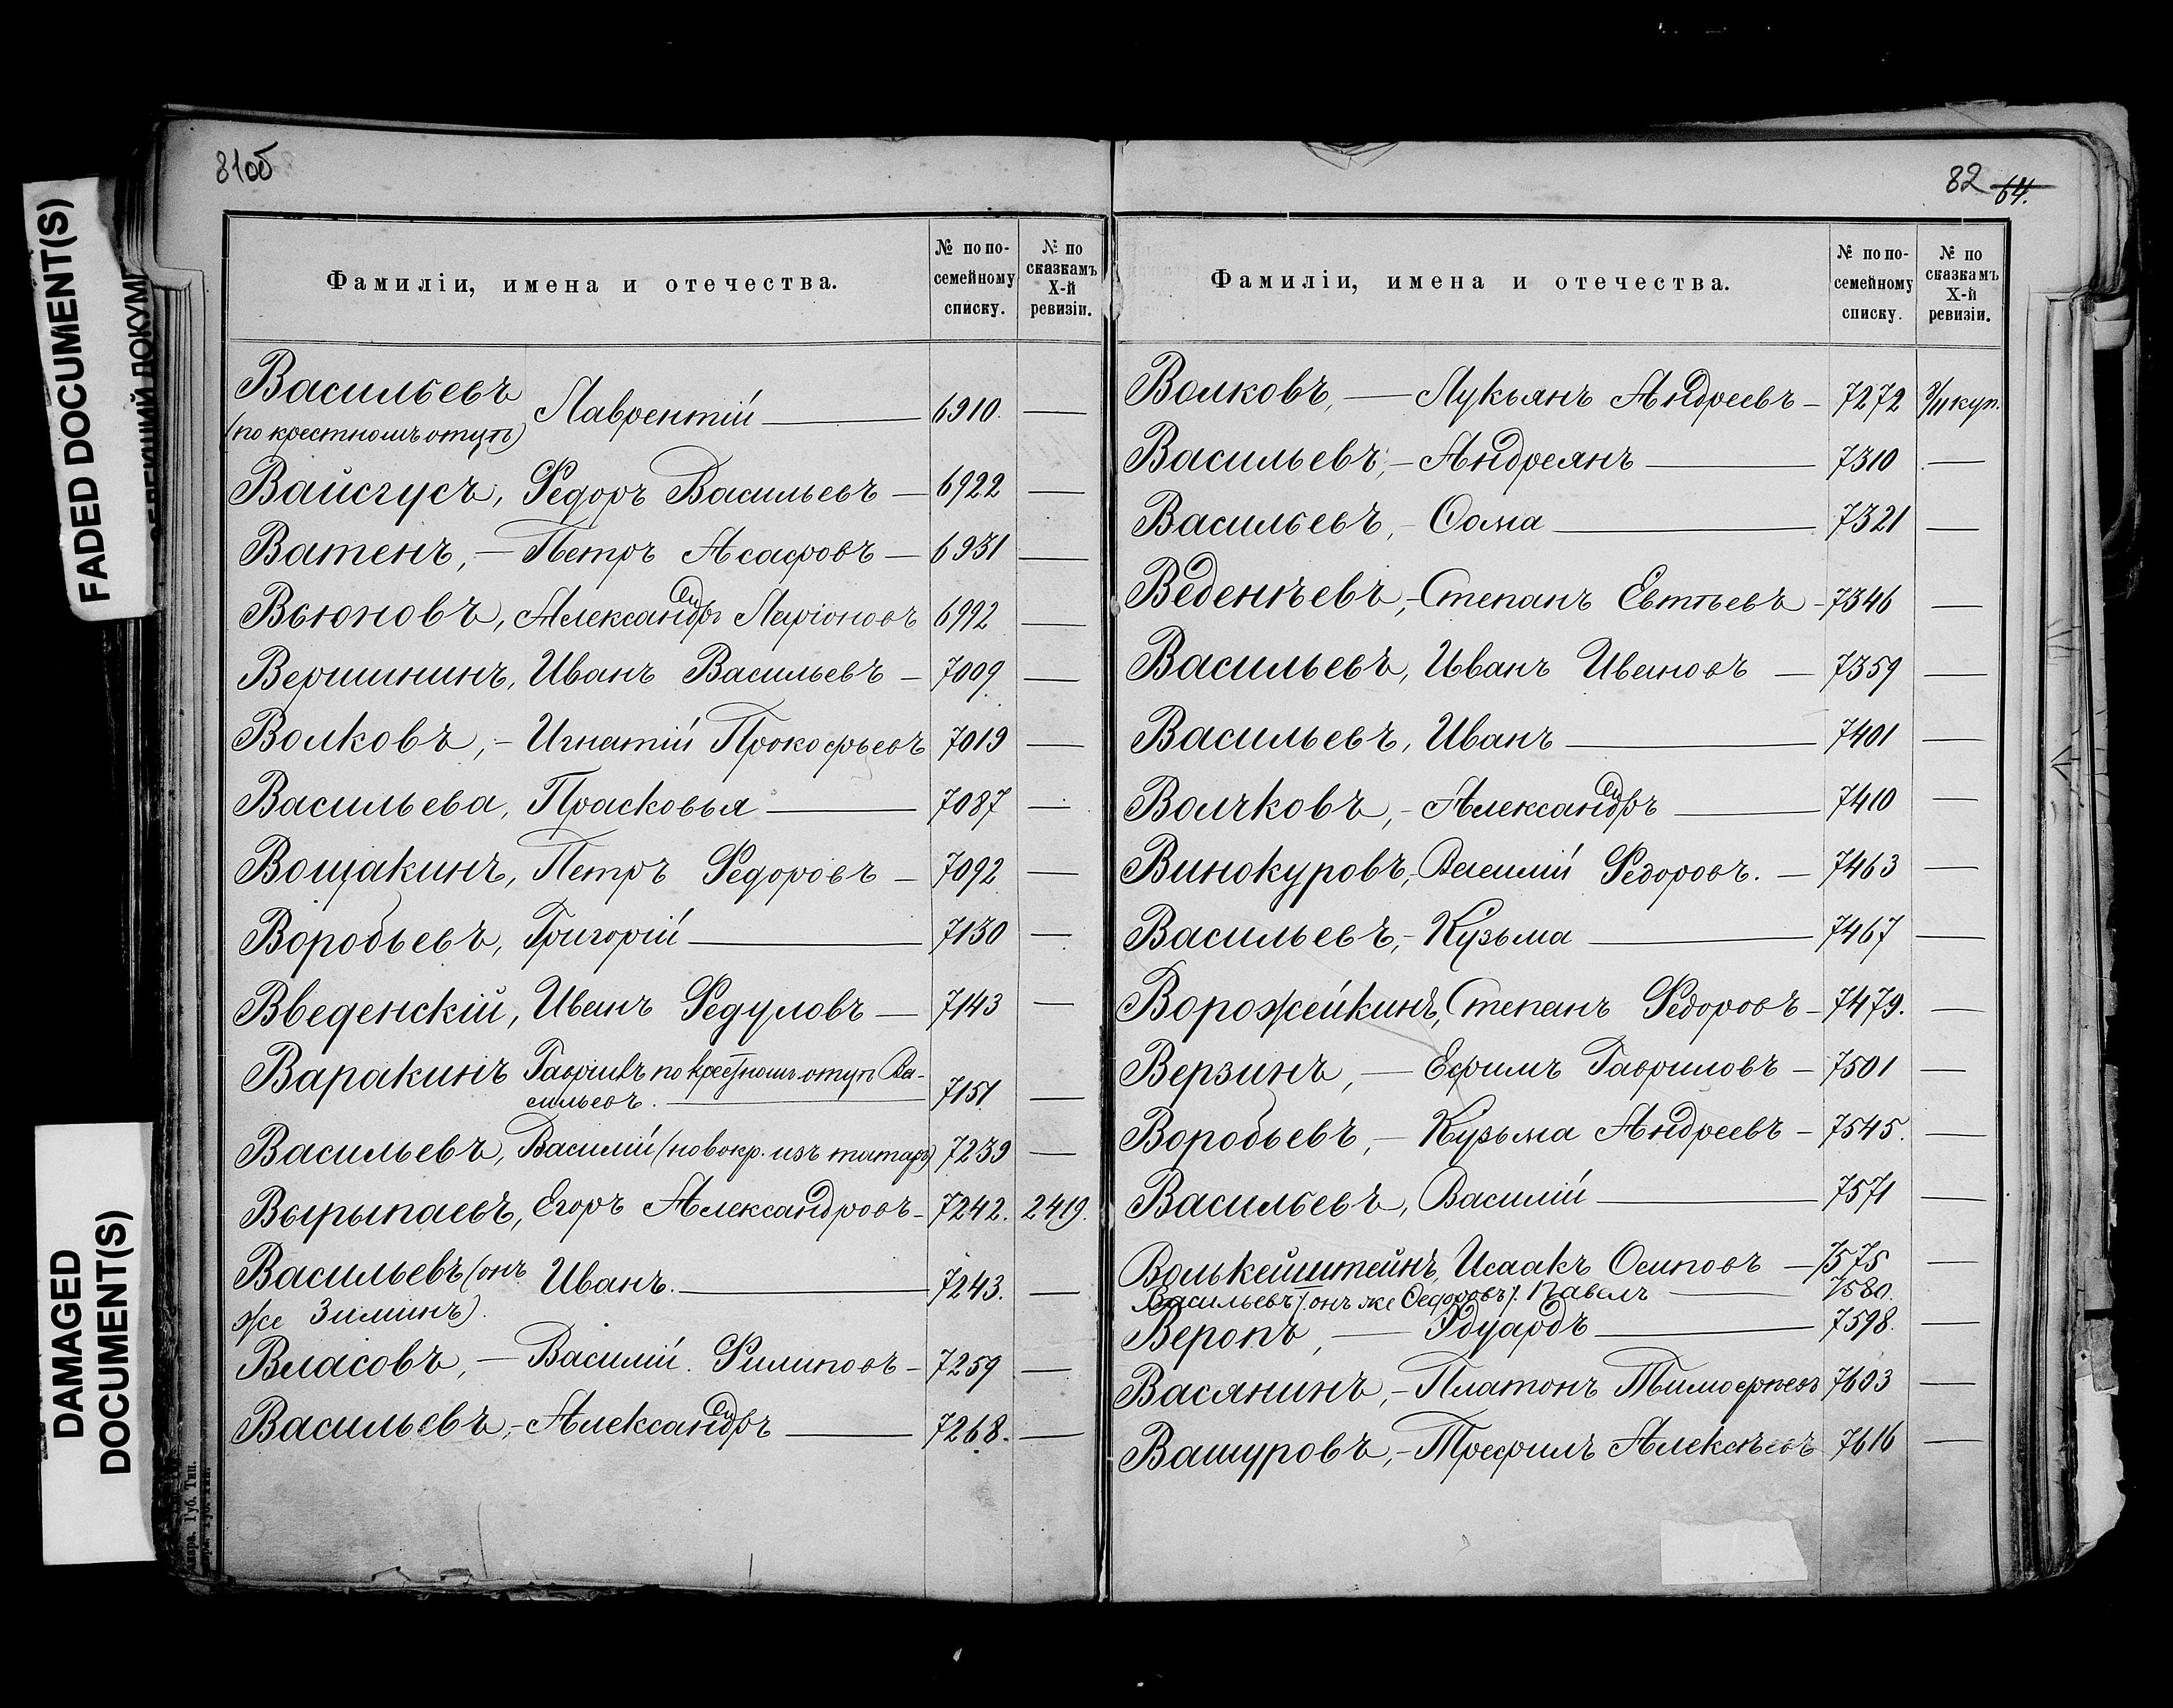 81об
82 64.
FADED DOCUMENT(S)
DAMAGED
DOCUMENT(S)
Фамиліи, имена и отечества.
№ по по-
семейному
списку.
№ по
сказкамъ
X-й
ревизіи.
Васильевъ
(по крестномъ отцѣ) Лаврентій — 6910. —
Вайсгусъ, Федоръ Васильевъ — 6922 —
Ватенъ, — Петръ Асафовъ — 6931 —
Вьюновъ, Александръ Ларіоновъ 6992 —
Вершининъ, Иванъ Васильевъ — 7009 —
Волковъ, — Игнатій Прокофьевъ 7019 —
Васильева, Прасковья — 7087 —
Вощакинъ, Петръ Федоровъ — 7092 —
Воробьевъ, Григорій — 7130 —
Введенскій, Иванъ Федуловъ — 7143 —
Варакинъ Гавріилъ по крестном отцѣ Ва-
сильевъ. — 7151 —
Васильевъ, Василій (новокр. изъ татаръ) 7239 —
Вырыпаевъ, Егоръ Александровъ — 7242. 2419.
Васильевъ (онъ
же Зиминъ). Иванъ. — 7243. —
Власовъ, — Василій Филиповъ — 7259 —
Васильевъ, — Александръ — 7268. —
Фамиліи, имена и отечества.
№ по по-
семейному
списку.
№ по
сказкамъ
X-й
ревизіи.
Волковъ, — Лукьянъ Андреевъ — 7272 9/11 куп.
Васильевъ, — Андреянъ — 7310 —
Васильевъ, — Ѳома — 7321 —
Веденѣевъ, — Степанъ Евтѣевъ — 7346 —
Васильевъ, Иванъ Ивановъ — 7359 —
Васильевъ, Иванъ — 7401 —
Волчковъ, — Александръ — 7410 —
Винокуровъ, — Василій Федоровъ. — 7463 —
Васильевъ, — Кузьма — 7467 —
Ворожейкинъ, Степанъ Федоровъ — 7479. —
Верзинъ, — Ефимъ Гавриловъ — 7501 —
Воробьевъ, — Кузьма Андреевъ — 7545. —
Васильевъ, Василій — 7571 —
Волькейштейнъ, Исаакъ Осиповъ — 7575 —
Васильевъ /. онъ же Ѳедоровъ /. Павелъ — 7580.
Веропъ, — Эдуардъ — 7598. —
Васянинъ, — Платонъ Тимофѣевъ 7603 —
Вашуровъ, — Трефилъ Алексѣевъ 7616 —